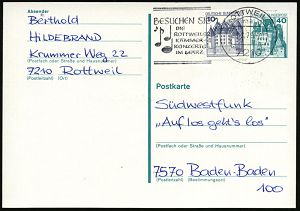 Absender
Berthold
HILDEBRAND
Krummer Weg 22
(Postfach oder Straße und Hausnummer)
7210 Rottweil
(Postleitzahl) (Ort)
BESUCHEN SIE
DIE
ROTTWEILER
KAMMER-
KONZERTE
ROTTWEIL
40
Postkarte
Südwestfunk
"Auf los geht's los"
(Postfach oder Straße und Hausnummer)
7570 Baden-Baden
(Postleitzahl) (Bestimmungsort)
100